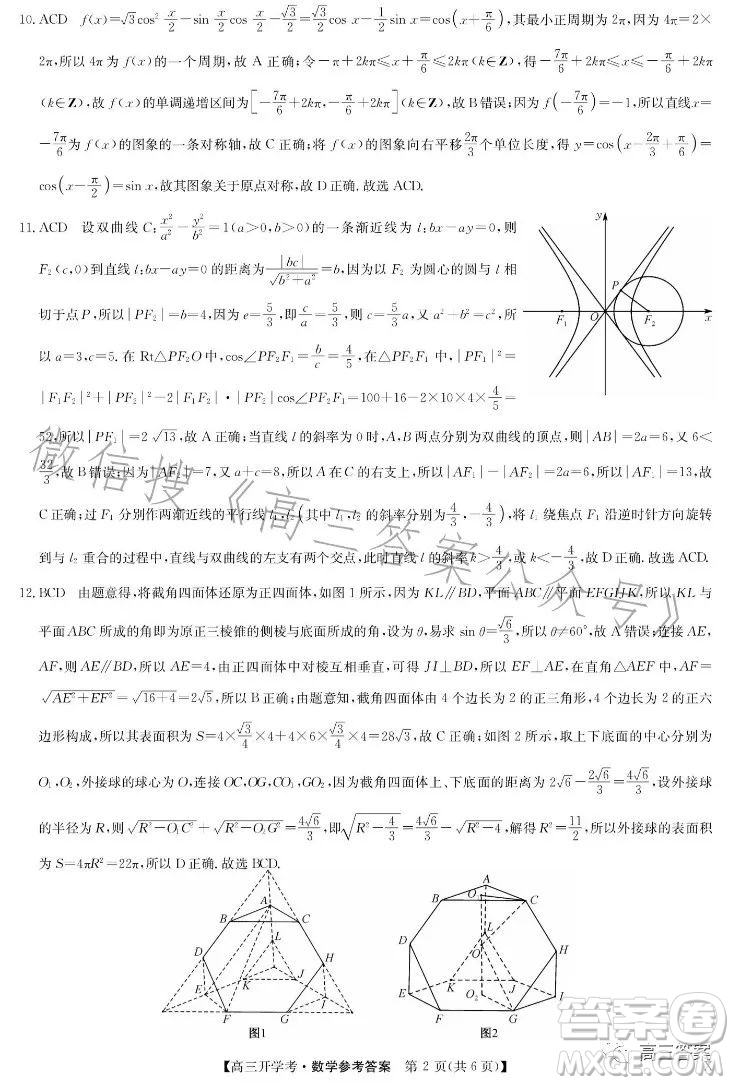 10. ACD  f(x)=√3cos² x/2−sin x/2cos x/2−√3/2=√3/2cos x−1/2sin x=cos(x+π/6),其最小正周期为2π,因为4π=2×
2π,所以4π为f(x)的一个周期,故A正确;令−π+2kπ≤x+π/6≤2kπ(k∈Z),得−7π/6+2kπ≤x≤−π/6+2kπ
(k∈Z),故f(x)的单调递增区间为[−7π/6+2kπ,−π/6+2kπ](k∈Z),故B错误;因为f(−7π/6)=−1,所以直线x=
−7π/6为f(x)的图象的一条对称轴,故C正确;将f(x)的图象向右平移2π/3个单位长度,得y=cos(x−2π/3+π/6)=
cos(x−π/2)=sin x,故其图象关于原点对称,故D正确.故选ACD.
11. ACD  设双曲线C:x²/a²−y²/b²=1(a>0,b>0)的一条渐近线为l:bx−ay=0,则
F₂(c,0)到直线l:bx−ay=0的距离为|bc|/√(b²+a²)=b,因为以F₂为圆心的圆与l相
切于点P,所以|PF₂|=b=4,因为e=5/3,即c/a=5/3,则c=5/3a,又a²+b²=c²,所
以a=3,c=5.在Rt△PF₂O中,cos∠PF₂F₁=b/c=4/5,在△PF₂F₁中,|PF₁|²=
|F₁F₂|²+|PF₂|²−2|F₁F₂|·|PF₂|cos∠PF₂F₁=100+16−2×10×4×4/5=
52,所以|PF₁|=2√13,故A正确;当直线l的斜率为0时,A,B两点分别为双曲线的顶点,则|AB|=2a=6,又6<
32/3,故B错误;因为|AF₂|=7,又a+c=8,所以A在C的右支上,所以|AF₁|−|AF₂|=2a=6,所以|AF₁|=13,故
C正确;过F₁分别作两渐近线的平行线l₁,l₂(其中l₁,l₂的斜率分别为4/3,−4/3),将l₁绕焦点F₁沿逆时针方向旋转
到与l₂重合的过程中,直线与双曲线的左支有两个交点,此时直线l的斜率k>4/3或k<−4/3,故D正确.故选ACD.
12. BCD  由题意得,将截角四面体还原为正四面体,如图1所示,因为KL∥BD,平面ABC∥平面EFGIJK,所以KL与
平面ABC所成的角即为原正三棱锥的侧棱与底面所成的角,设为θ,易求sin θ=√6/3,所以θ≠60°,故A错误;连接AE,
AF,则AE∥BD,所以AE=4,由正四面体中对棱互相垂直,可得JI⊥BD,所以EF⊥AE,在直角△AEF中,AF=
√(AE²+EF²)=√(16+4)=2√5,所以B正确;由题意知,截角四面体由4个边长为2的正三角形,4个边长为2的正六
边形构成,所以其表面积为S=4×√3/4×4+4×6×√3/4×4=28√3,故C正确;如图2所示,取上下底面的中心分别为
O₁,O₂,外接球的球心为O,连接OC,OG,CO₁,GO₂,因为截角四面体上、下底面的距离为2√6−2√6/3=4√6/3,设外接球
的半径为R,则√(R²−O₁C²)+√(R²−O₂G²)=4√6/3,即√(R²−4/3)=4√6/3−√(R²−4),解得R²=11/2,所以外接球的表面积
为S=4πR²=22π,所以D正确.故选BCD.
y
P
F₁ O F₂ x
A
B C
L
D H
K J
E I
F G
图1
A
O₁
B C
L
D O H
K J
E O₂ I
F G
图2
【高三开学考·数学参考答案  第2页(共6页)】
微信搜《高三答案公众号》
答案圈
高三答案